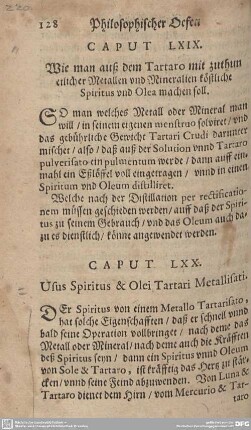 128 Philosophischer Oefen
CAPUT LXIX.
Wie man auß dem Tartaro mit zuthun
etlicher Metallen vnd Mineralien köstliche
Spiritus vnd Olea machen soll.
SO man welches Metall oder Mineral man
will / in seinem eigenen menstruo solviret / vnd
das gebührliche Gewicht Tartari Crudi darunter
mischet / also / daß auß der Solution vnnd Tartaro
pulverisato ein pulmentum werde / dann auff ein-
mahl ein Eßlöffel voll eingetragen / vnnd in einen
Spiritum vnd Oleum distilliret.
Welche nach der Distillation per rectificatio-
nem müssen geschieden werden / auff daß der Spiri-
tus zu seinem Gebrauch / vnd das Oleum auch da-
zu es dienstlich / könne angewendet werden.
CAPUT LXX.
Usus Spiritus & Olei Tartari Metallisati.
DEr Spiritus von einem Metallo Tartarisato
hat solche Eigenschafften / daß er schnell vnnd
bald seine Operation vollbringet / nach deme das
Metall oder Mineral / nach deme auch die Kräfften
deß Spiritus seyn / dann ein Spiritus vnnd Oleum
von Sole & Tartaro, ist kräfftig das Hertz zu stär-
cken / vnnd seine Feind abzuwenden. Von Luna &
Tartaro dienet dem Hirn / vom Mercurio & Tar-
taro